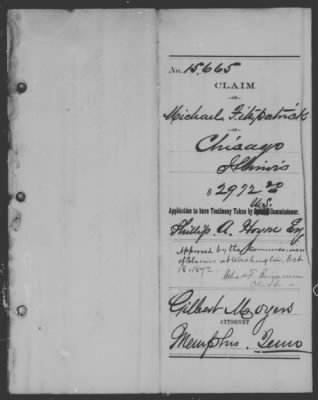 No. 15.665
CLAIM
—OF—
Michael Fitzpatrick
—OF—
Chicago
Illinois
$2972 20
U.S.
Application to have Testimony Taken by Commissioner.
Phillip A. Hoyne Esq
Approved by the Commissioners
of Claims at Washington, Oct
18, 1872.
Chas F. Benjamin
Clerk
Gilbert Moyers
ATTORNEY
Memphis, Tenn